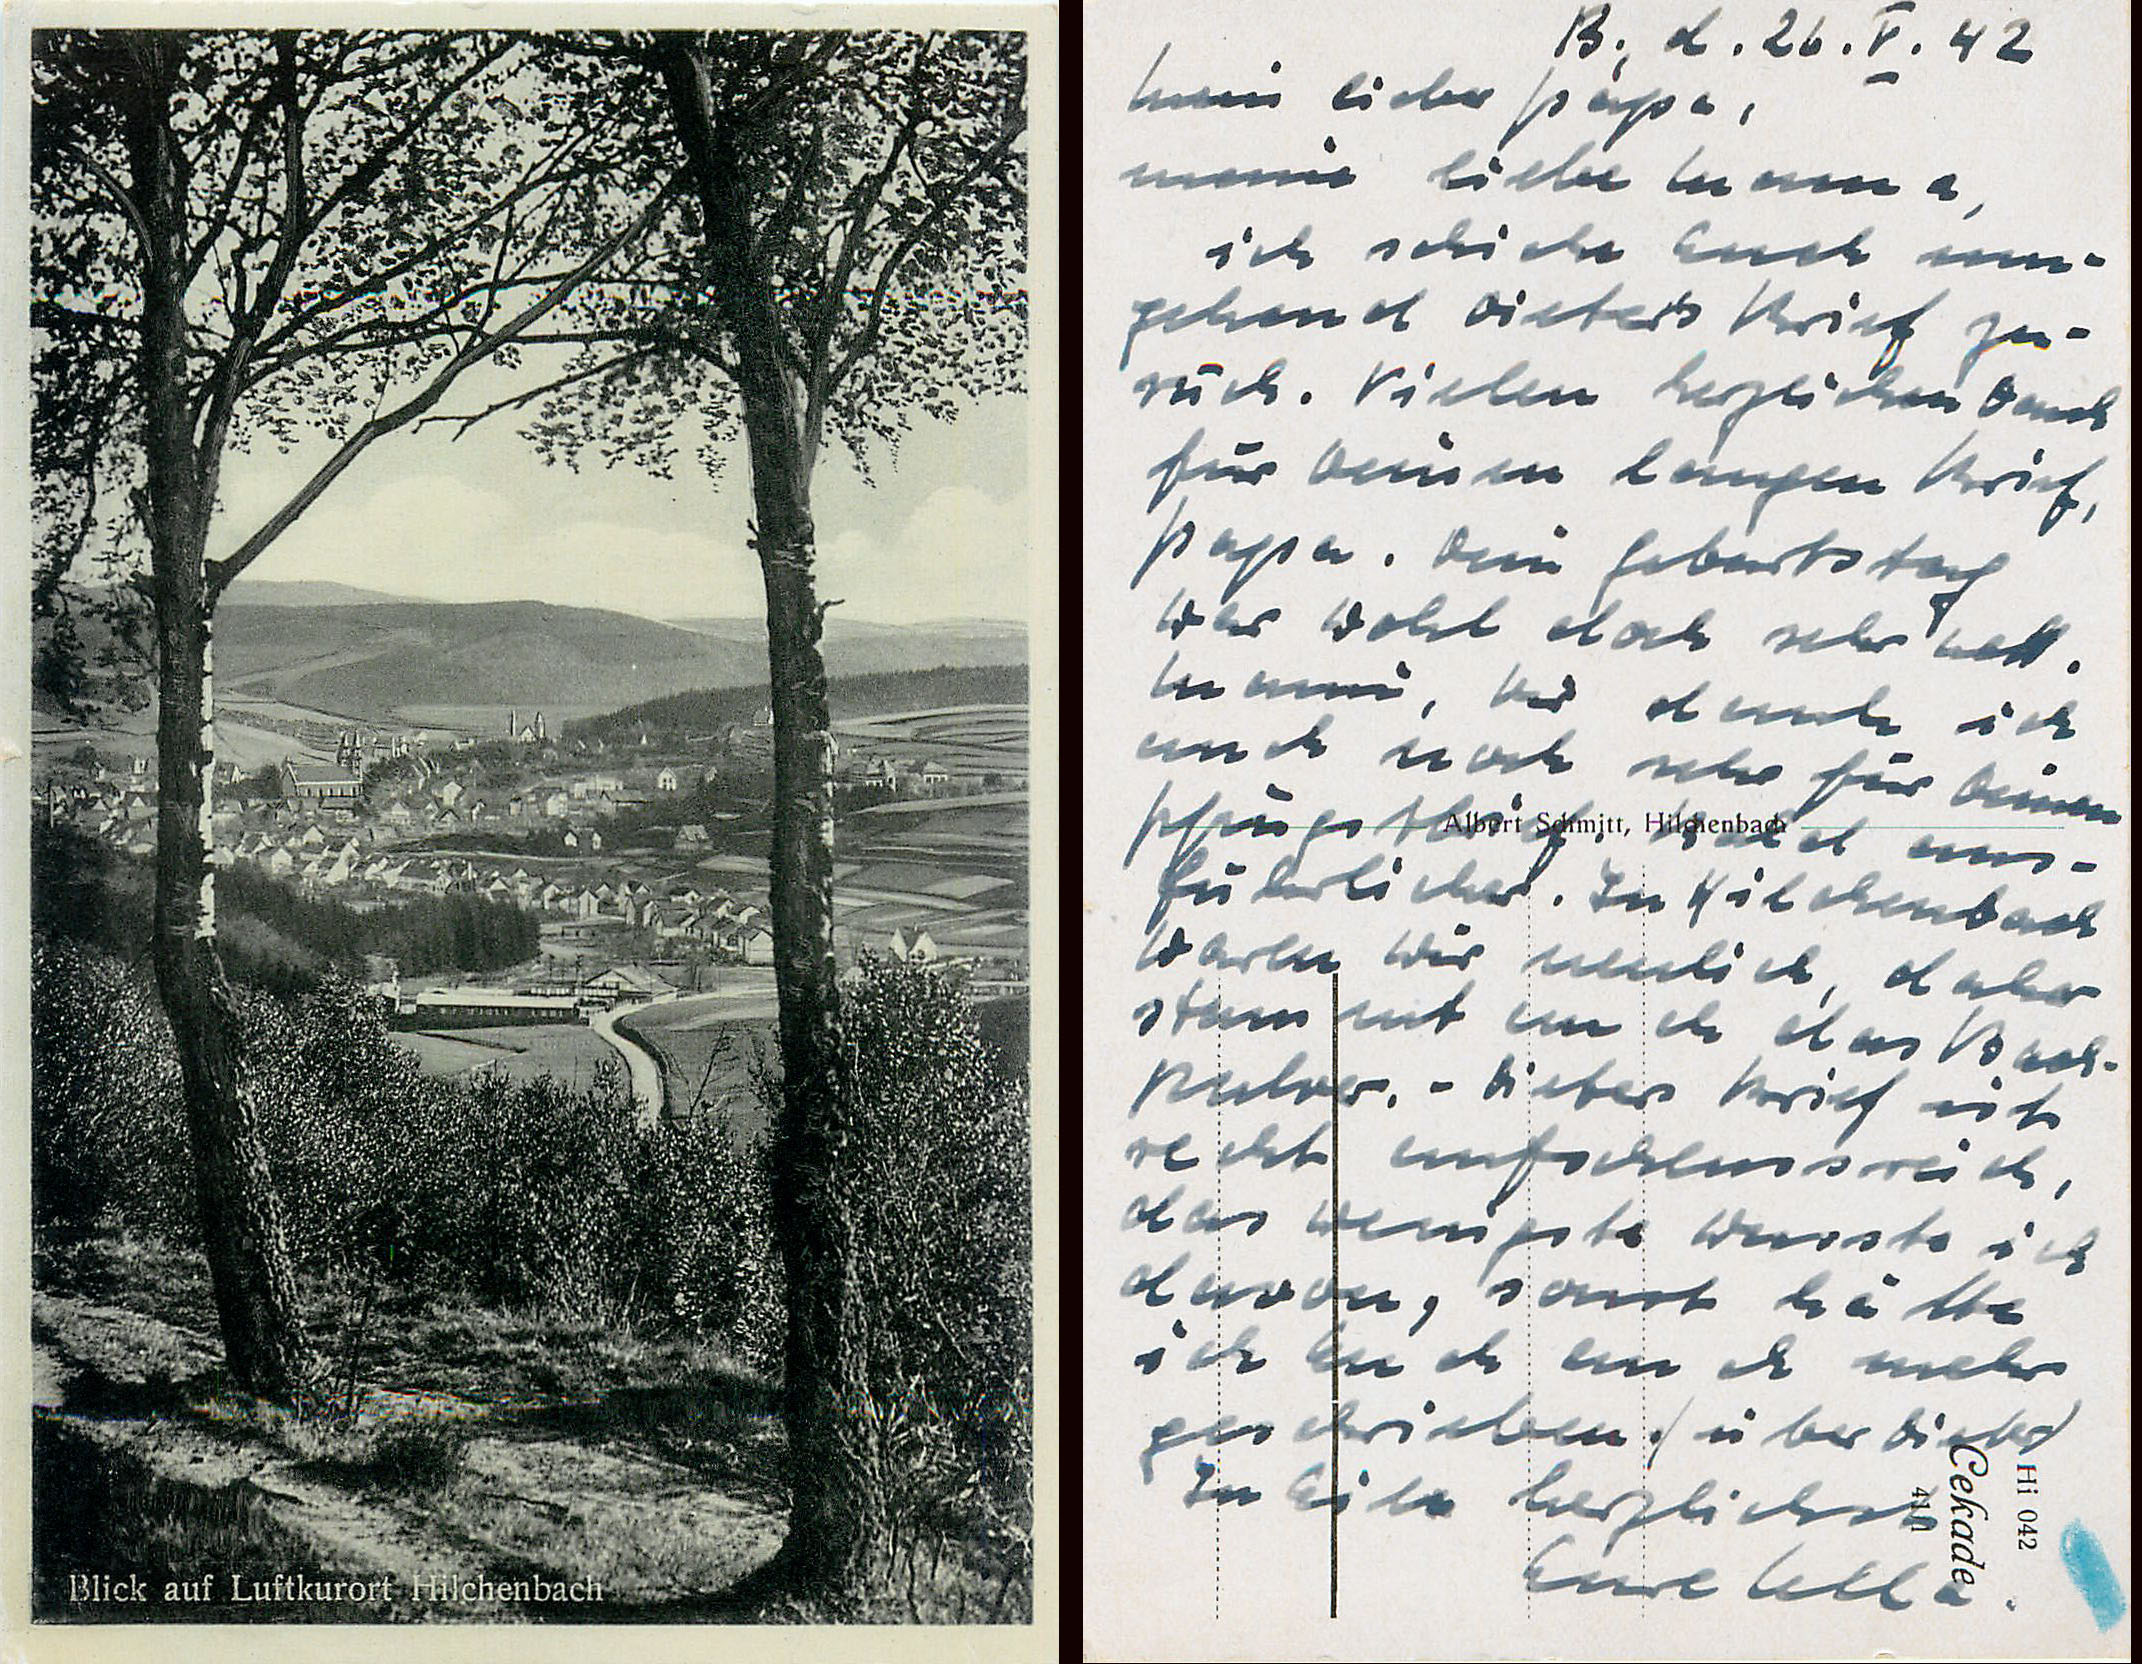 Blick auf Luftkurort Hilchenbach
B., d. 26. V. 42
Mein lieber Papa,
meine liebe Mama,
ich schicke Euch um-
gehend Dieters Brief zu-
rück. Vielen herzlichen Dank
für Deinen langen Brief,
Papa. Dein Geburtstag
war wohl doch sehr nett.
Mammi, Dir danke ich
auch noch sehr für Deinen
Pfingstbrief,
Albert Schmitt, Hilchenbach
führlicher. In Hilchenbach
waren wir neulich, daher
stammt auch das Back-
pulver. - Dieters Brief ist
recht aufschlussreich,
das wenigste wusste ich
davon, sonst hätte
ich Euch auch mehr
geschrieben. (über Dieter)
In Eile herzlichst
Eure Ulla.
Cekade
Hi 042